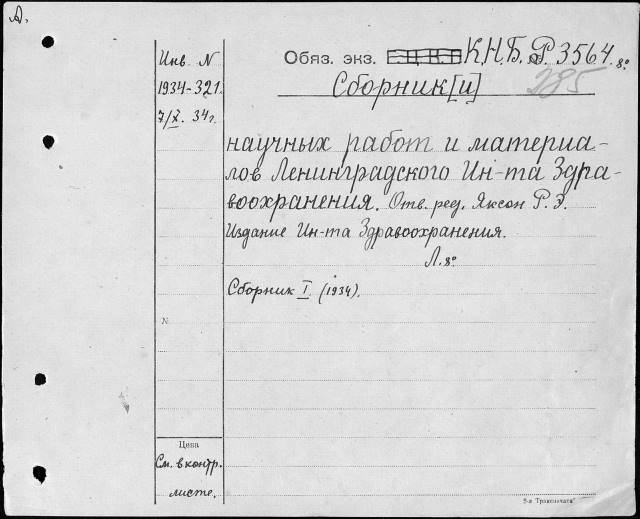 А.
Инв. N
1934-321.
7/X. 34 г.
Обяз. экз. Ц.К.Б. К.Н.Б. Р 3564. 8°
285
Сборник[и]
научных работ и материа-
лов Ленинградского Ин-та Здра-
воохранения. Отв. ред. Яксон Р. Э.
Издание Ин-та Здравоохранения.
Л. 8°
Сборник I (1934).
N
Цена
См. в контр.
листе.